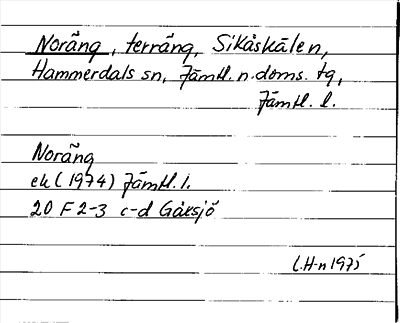 Noräng, terräng, Sikåskälen,
Hammerdals sn, Jämtl. n. doms. tg,
Jämtl. l.
Noräng
ek (1974) Jämtl. l.
20 F 2-3 c-d Gåxsjö
C.H-n 1975